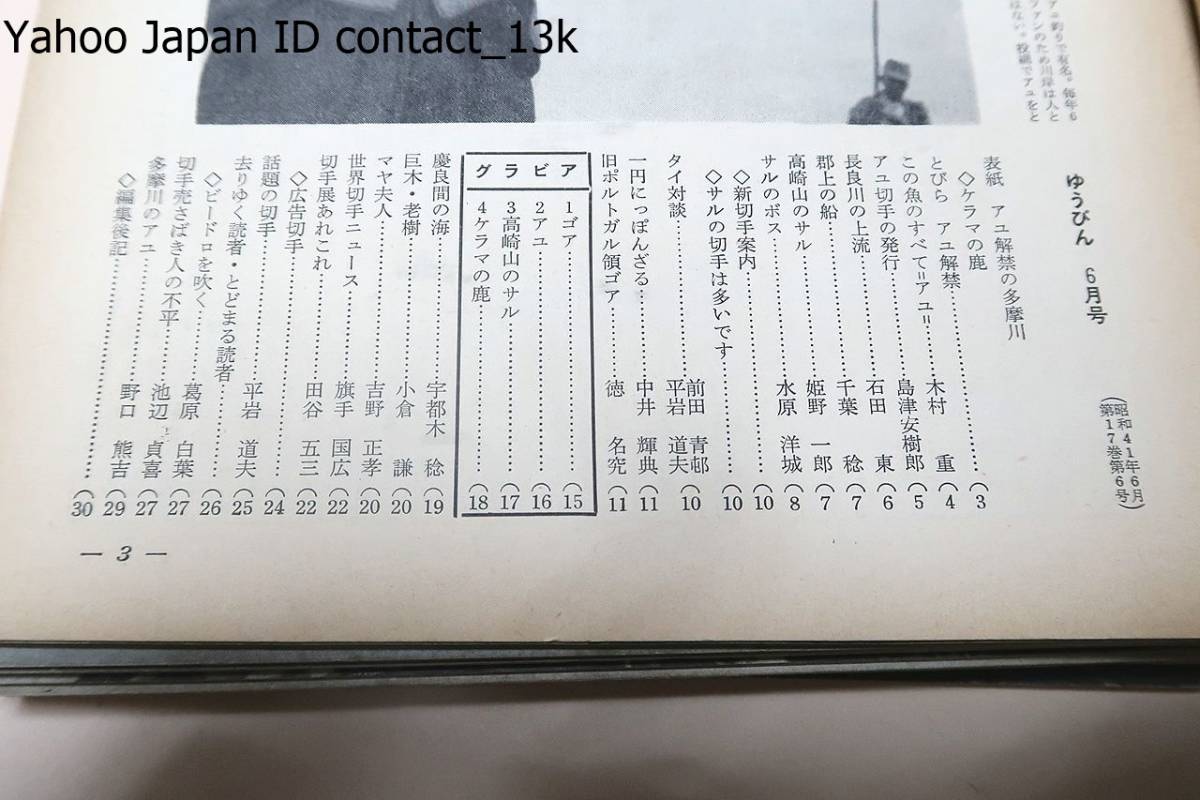 Yahoo Japan ID contact_13k
アユ釣りで有名。毎年6
ファンのため川岸は人と
はない。投網でアユをと
ゆうびん 6月号
(昭和41年6月
第17巻第6号)
表紙 アユ解禁の多摩川
◇ケラマの鹿……(3)
とびら アユ解禁……木村 重(4)
この魚のすべて=アユ=……島津安樹郎(5)
アユ切手の発行……石田 東(6)
長良川の上流……千葉 稔(7)
郡上の船……姫野 一郎(7)
高崎山のサル
サルのボス……水原 洋城(8)
◇新切手案内……(10)
◇サルの切手は多いです……(10)
タイ対談……前田 青邨 平岩 道夫(10)
一円にっぽんざる……中井 輝典(11)
旧ポルトガル領ゴア……徳 名究(11)
グラビア
1ゴア……(15)
2アユ……(16)
3高崎山のサル……(17)
4ケラマの鹿……(18)
慶良間の海……宇都木 稔(19)
巨木・老樹……小倉 謙(20)
マヤ夫人……吉野 正孝(20)
世界切手ニュース……旗手 国広(22)
切手展あれこれ……田谷 五三(22)
◇広告切手……(24)
話題の切手……平岩 道夫(25)
去りゆく読者・とどまる読者……(26)
◇ビードロを吹く……葛原 白葉(27)
切手売さばき人の不平……池辺 貞喜(27)
多摩川のアユ……野口 熊吉(29)
◇編集後記……(30)
— 3 —